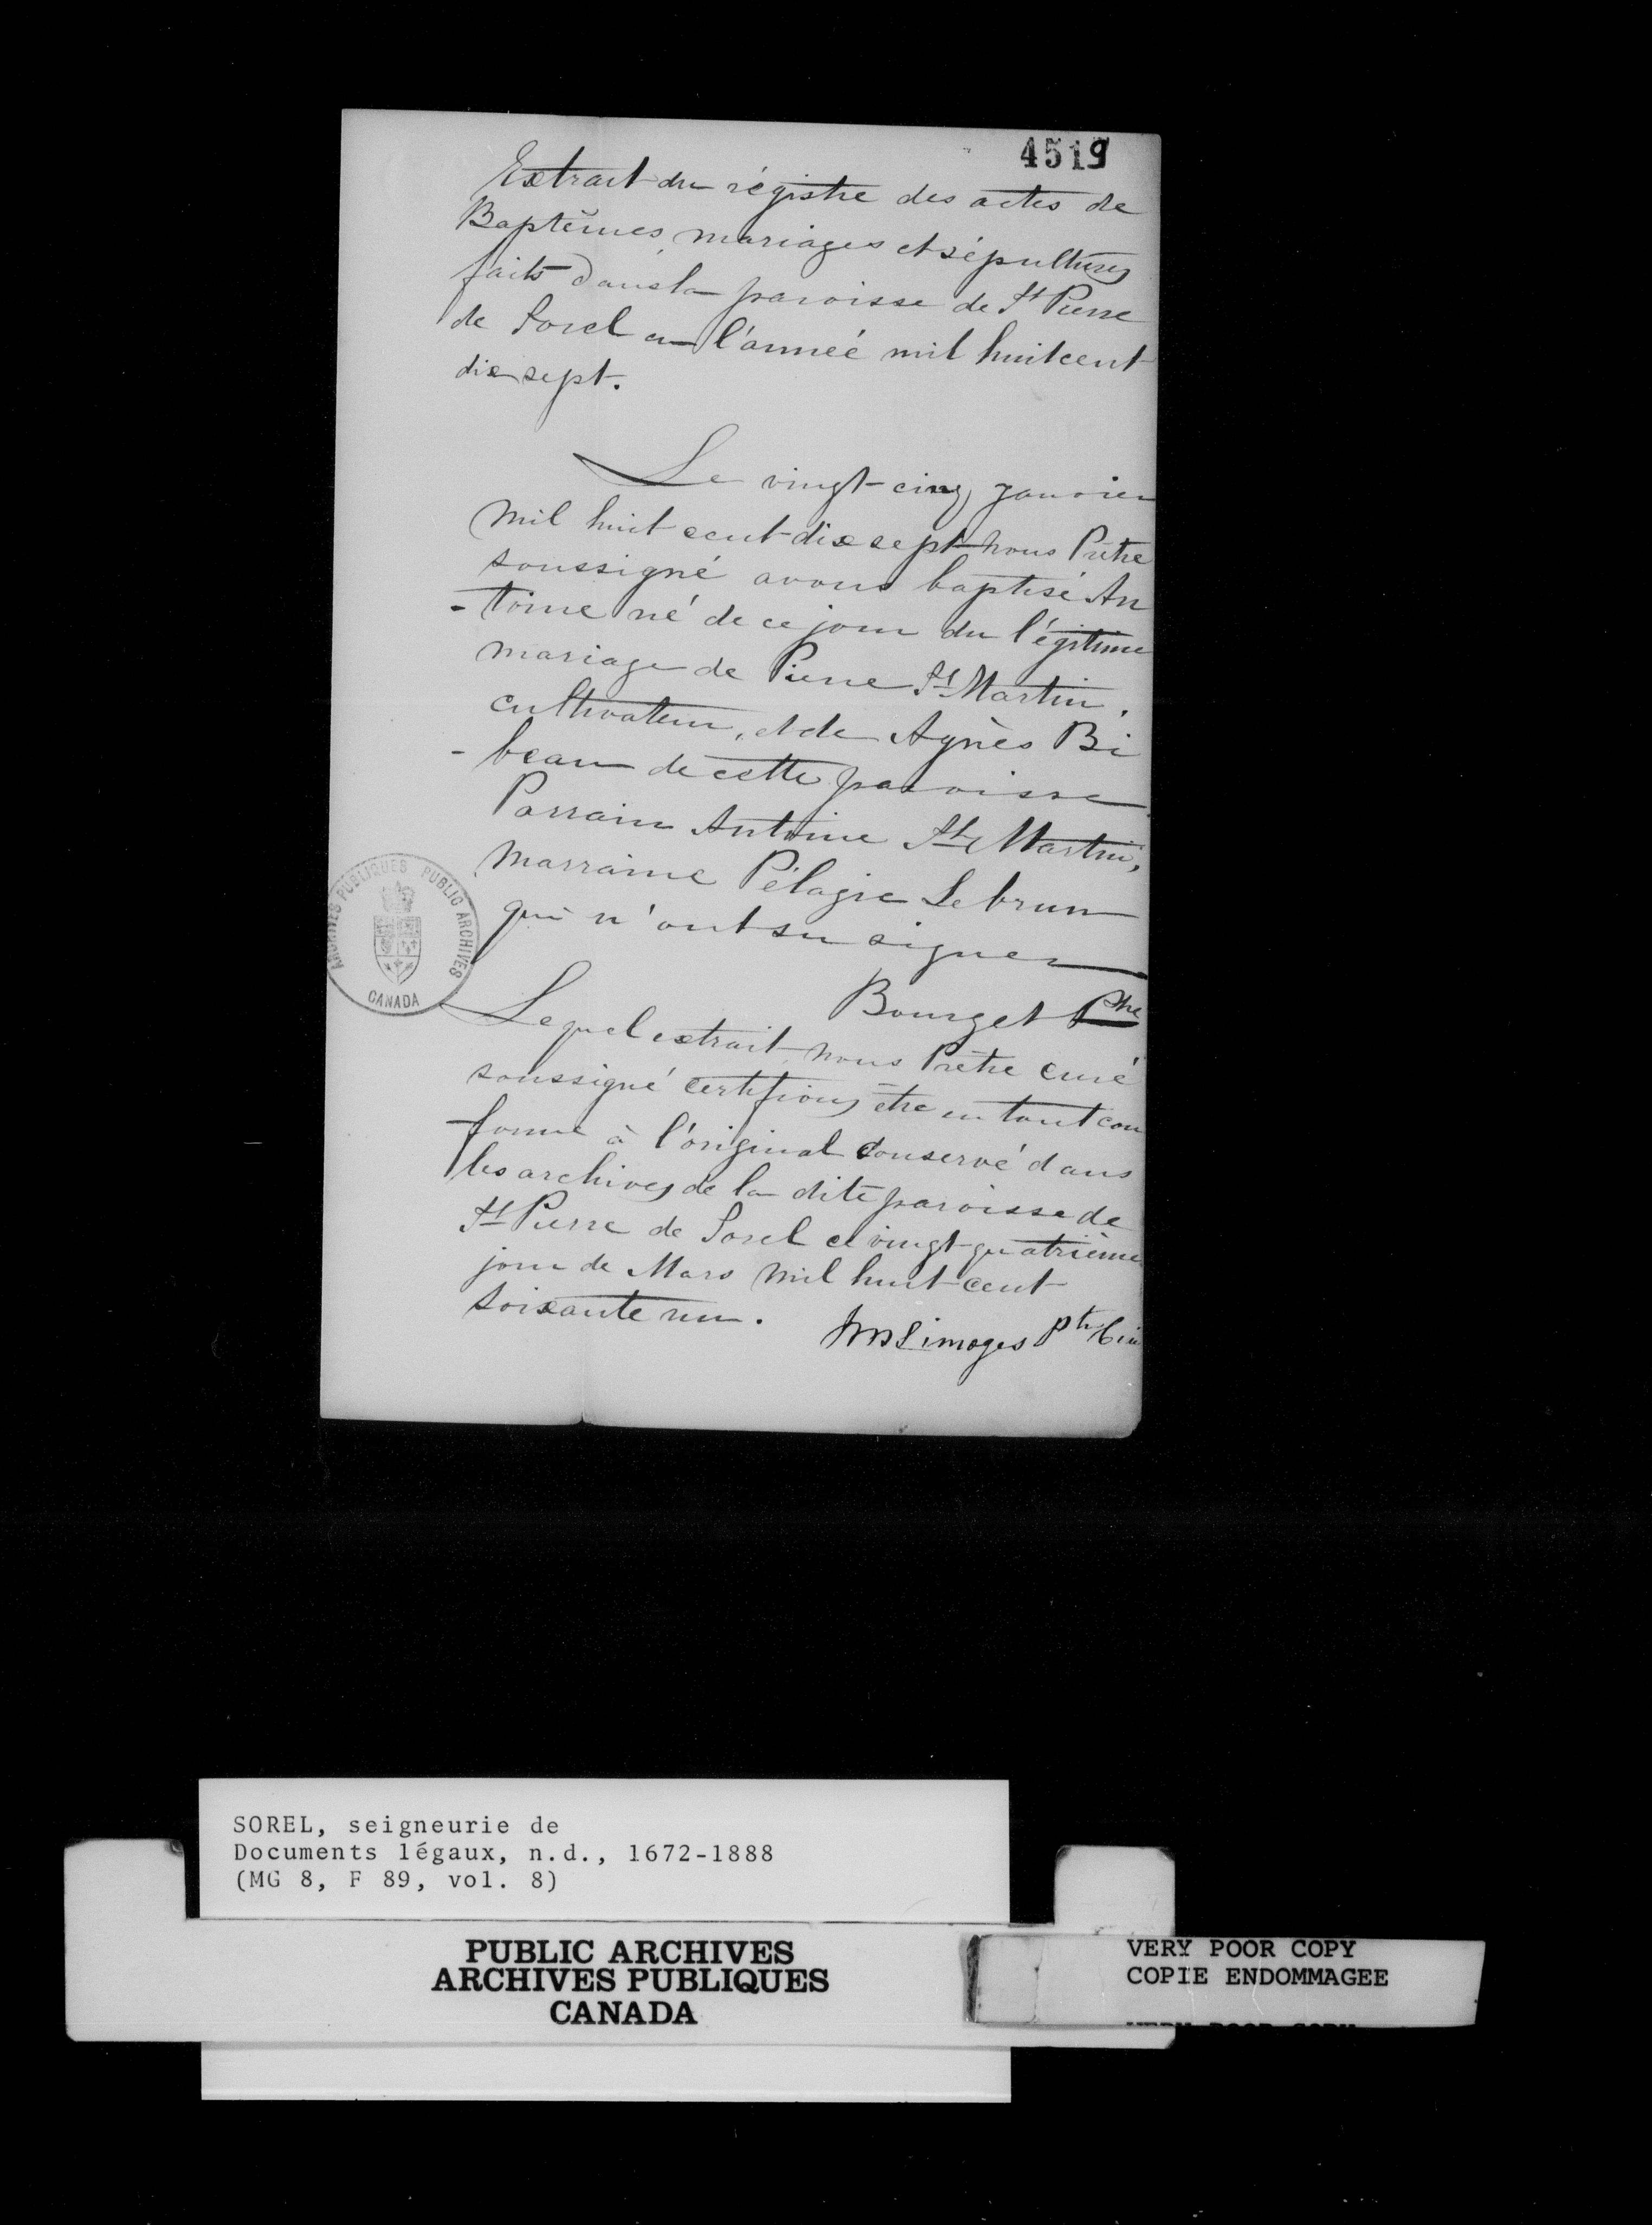 4519
Extrait du régistre des actes de
Baptêmes, mariages et sépultures
faits dans la paroisse de St Pierre
de Sorel en l'année mil huit cent
dix sept.
Le vingt-cinq janvier
mil huit cent dix sept nous Prêtre
soussigné avons baptisé An
-toine né de ce jour du légitime
mariage de Pierre St Martin,
cultivateur, et de Agnès Bi
-beau de cette paroisse
Parrain Antoine St Martin,
marraine Pélagie Lebrun
qui n'ont su signer
Bourget Ptre
Lequel extrait nous Prêtre Curé
soussigné certifions être en tout con
forme à l'original conservé dans
les archives de la dite paroisse de
St Pierre de Sorel ce vingt-quatrième
jour de Mars mil huit cent
soixante un.
Limoges Ptre
ARCHIVES PUBLIQUES PUBLIC ARCHIVES
CANADA
SOREL, seigneurie de
Documents légaux, n.d., 1672-1888
(MG 8, F 89, vol. 8)
PUBLIC ARCHIVES
ARCHIVES PUBLIQUES
CANADA
VERY POOR COPY
COPIE ENDOMMAGEE
VERY POOR COPY